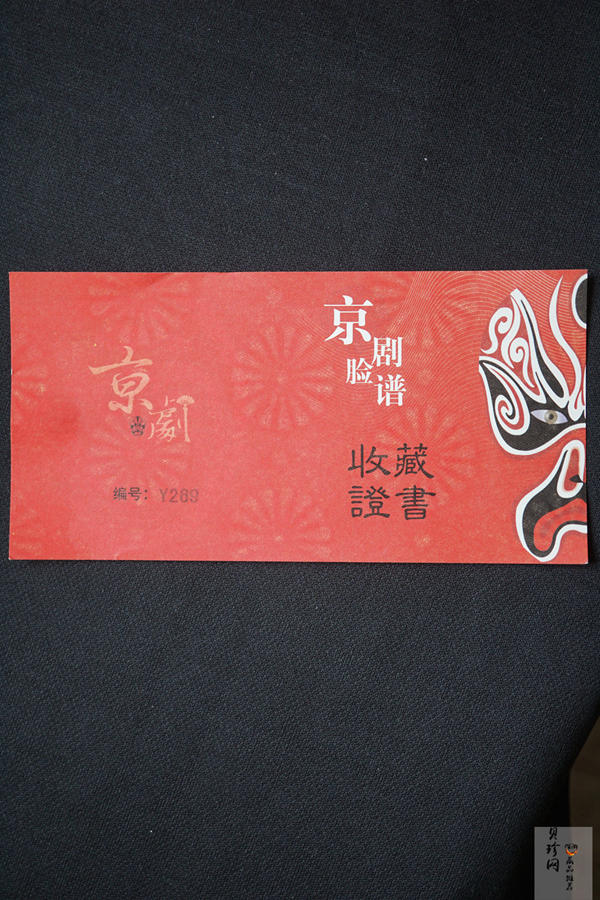 京劇
编号：Y289
京剧
脸谱
收藏
證書
贝珍网